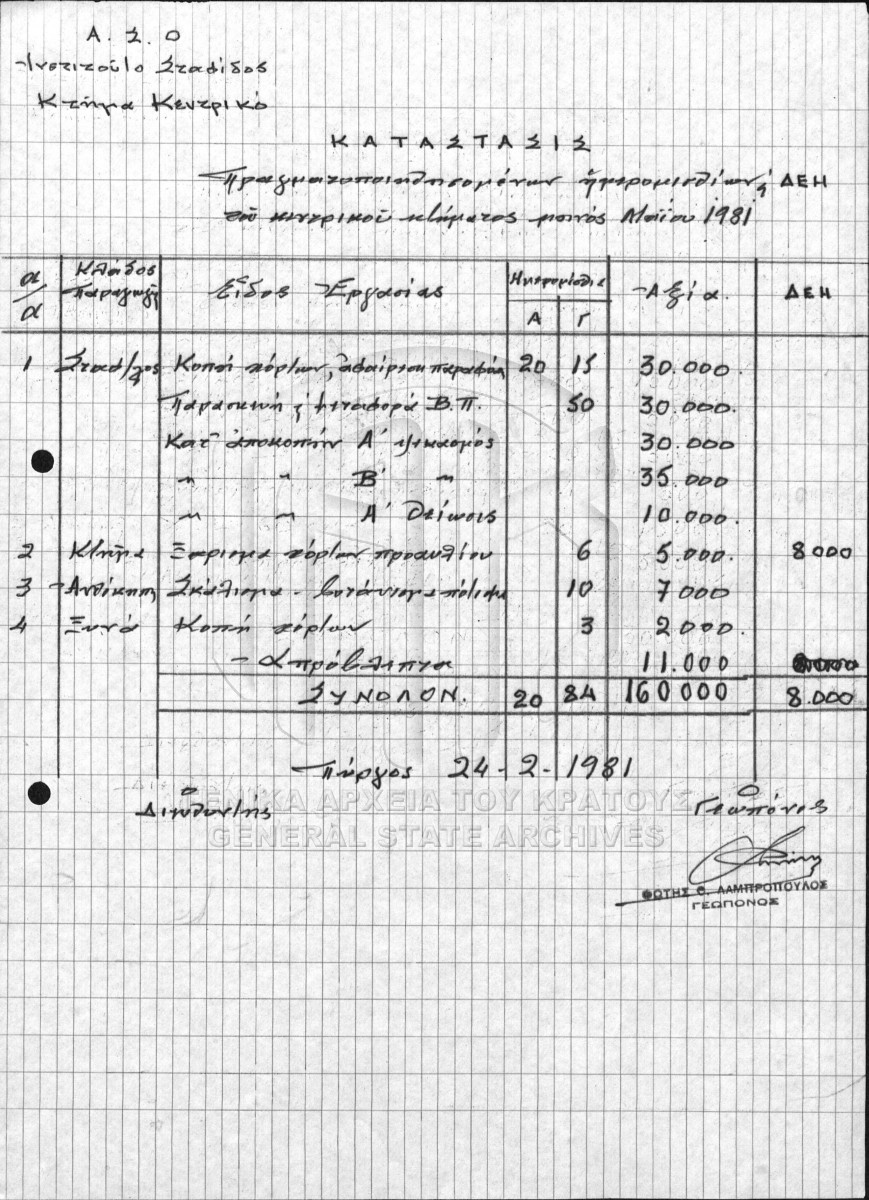 Α. Σ. Ο
Ινστιτούτο Σταφίδος
Κτήμα Κεντρικό
ΚΑΤΑΣΤΑΣΙΣ
Πραγματοποιηθησομένων ἡμερομισθίων ΔΕΗ
τοῦ κεντρικοῦ κτήματος μηνός Μαΐου 1981
α/α Κλάδος Παραγωγῆς Εἶδος Ἐργασίας Ημερομίσθια Α Γ Ἀξία. ΔΕΗ
1 Κοπή χόρτων, ἀφαίρεση 20 15 30.000.
Παρασκευή & μεταφορά Β.Π. 50 30.000.
Κατ' ἀποκοπήν Α' ψεκασμός 30.000
" " Β' " 35.000
" " Α' θείωσις 10.000.
2 Κτῆμα Ξάρισμα χόρτων προαυλίου 6 5.000. 8000
3 Ἀνθόκηπ Σκάλισμα - βοτάνισμα 10 7000
4 Ξυνά Κοπή χόρτων 3 2000.
Ἀπρόβλεπτα 11.000
ΣΥΝΟΛΟΝ. 20 84 160000 8.000
Πύργος 24-2-1981
Ὁ Διευθυντής
Ὁ Γεωπόνος
ΓΕΝΙΚΑ ΑΡΧΕΙΑ ΤΟΥ ΚΡΑΤΟΥΣ
GENERAL STATE ARCHIVES
ΦΩΤΗΣ Θ. ΛΑΜΠΡΟΠΟΥΛΟΣ
ΓΕΩΠΟΝΟΣ